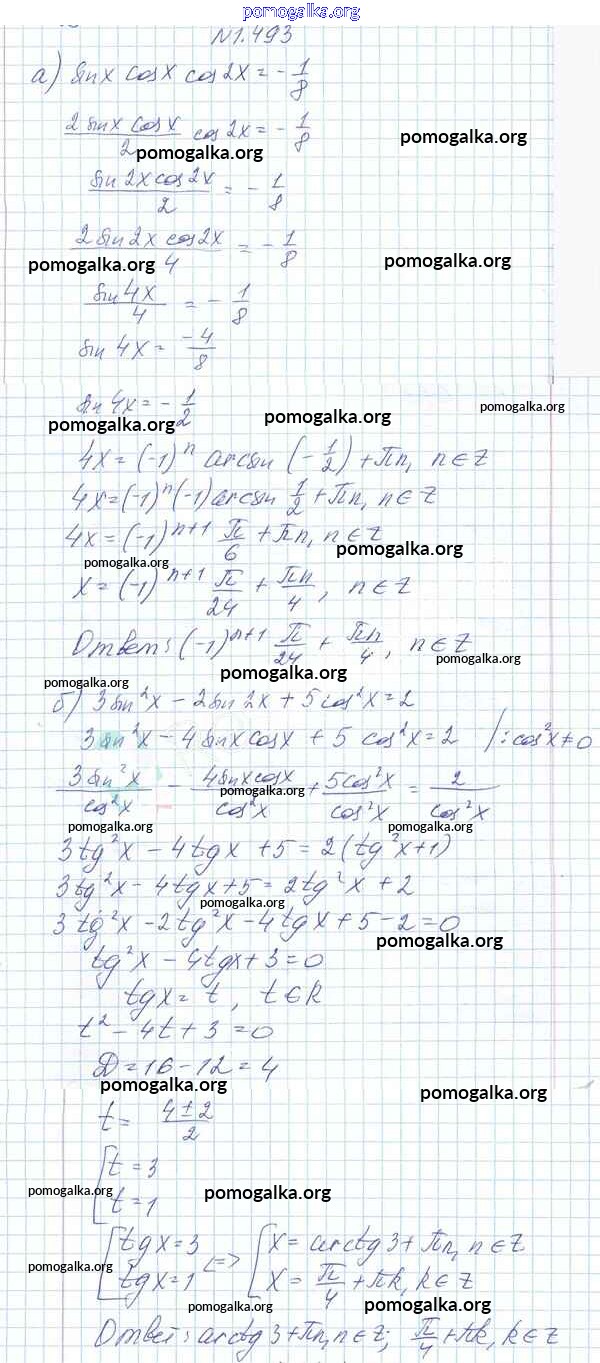 pomogalka.org
№1.493
а) sinx cosx cos2x = - 1/8
2sinx cosx/2 cos2x = - 1/8
pomogalka.org
pomogalka.org
sin2x cos2x/2 = - 1/8
2sin2x cos2x/4 = - 1/8
pomogalka.org
pomogalka.org
sin4x/4 = - 1/8
sin4x = -4/8
sin4x = - 1/2
pomogalka.org
pomogalka.org
pomogalka.org
4x = (-1)ⁿ arcsin (- 1/2) + πn, n∈Z
4x = (-1)ⁿ(-1) arcsin 1/2 + πn, n∈Z
4x = (-1)ⁿ⁺¹ π/6 + πn, n∈Z
pomogalka.org
pomogalka.org
x = (-1)ⁿ⁺¹ π/24 + πn/4, n∈Z
Ответ: (-1)ⁿ⁺¹ π/24 + πn/4, n∈Z
pomogalka.org
pomogalka.org
pomogalka.org
б) 3sin²x - 2sin2x + 5cos²x = 2
3sin²x - 4sinxcosx + 5cos²x = 2 /: cos²x ≠ 0
3sin²x/cos²x - 4sinxcosx/cos²x + 5cos²x/cos²x = 2/cos²x
pomogalka.org
pomogalka.org
pomogalka.org
3tg²x - 4tgx + 5 = 2(tg²x+1)
3tg²x - 4tgx + 5 = 2tg²x + 2
pomogalka.org
3tg²x - 2tg²x - 4tgx + 5 - 2 = 0
pomogalka.org
tg²x - 4tgx + 3 = 0
tgx = t, t∈R
t² - 4t + 3 = 0
D = 16 - 12 = 4
pomogalka.org
pomogalka.org
t = 4±2/2
[t = 3
t = 1
pomogalka.org
pomogalka.org
[tgx = 3 <=> [x = arctg3 + πn, n∈Z
tgx = 1 x = π/4 + πk, k∈Z
pomogalka.org
pomogalka.org
pomogalka.org
Ответ: arctg3 + πn, n∈Z; π/4 + πk, k∈Z